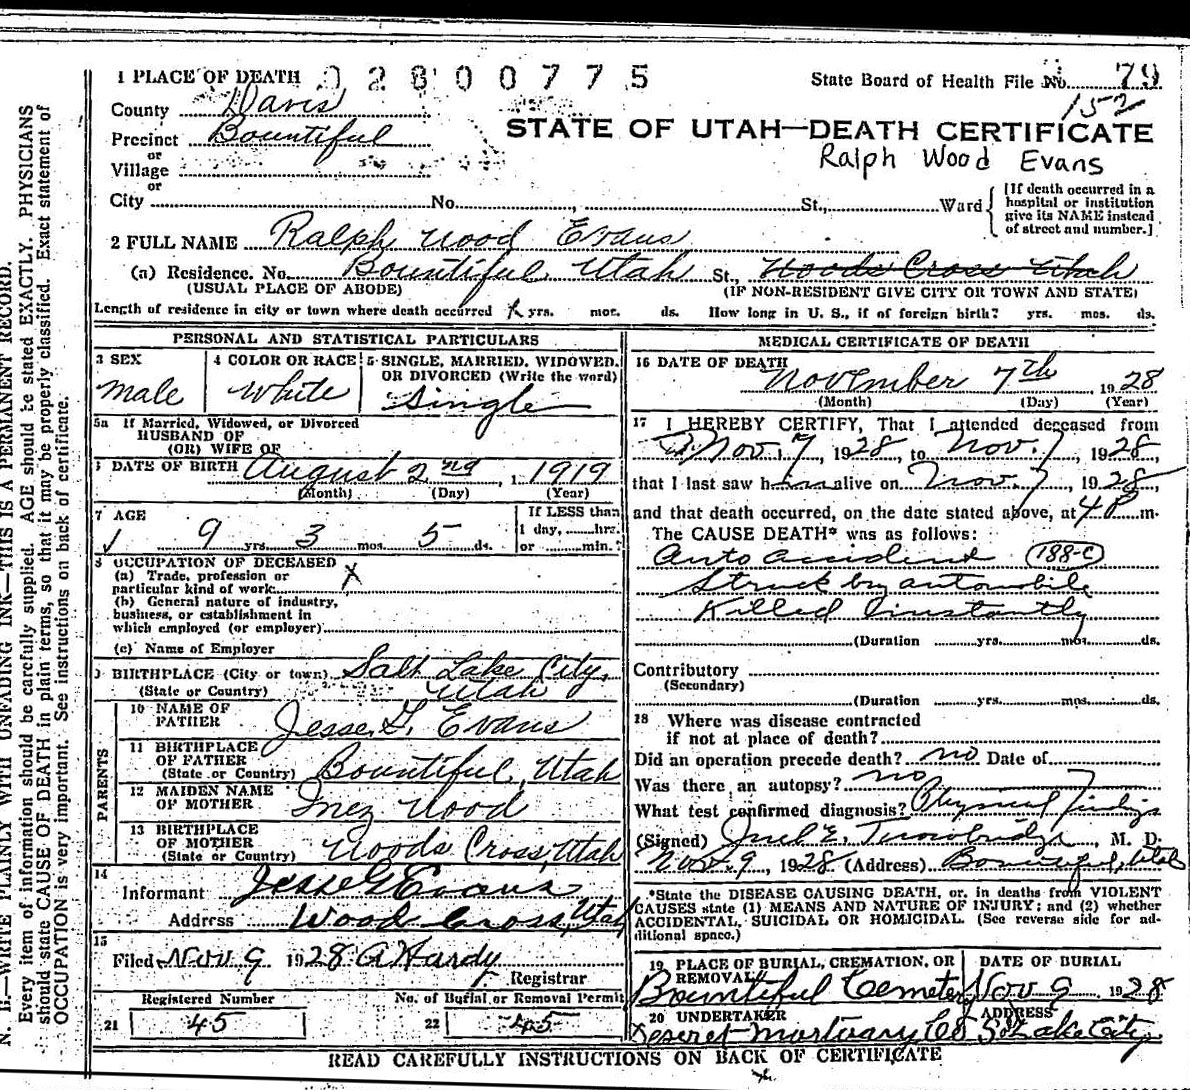 1 PLACE OF DEATH 02800775
State Board of Health File No. 79
County Davis
152
Precinct Bountiful
STATE OF UTAH—DEATH CERTIFICATE
or
Village
Ralph Wood Evans
or
City No. St., Ward
[If death occurred in a
hospital or institution
give its NAME instead
of street and number.]
2 FULL NAME Ralph Wood Evans
(a) Residence. No. Bountiful, Utah St., Woods Cross Utah
(USUAL PLACE OF ABODE) (IF NON-RESIDENT GIVE CITY OR TOWN AND STATE)
Length of residence in city or town where death occurred yrs. mos. ds. How long in U. S., if of foreign birth? yrs. mos. ds.
PERSONAL AND STATISTICAL PARTICULARS
3 SEX 4 COLOR OR RACE 5 SINGLE, MARRIED, WIDOWED,
OR DIVORCED (Write the word)
Male White Single
5a If Married, Widowed, or Divorced
HUSBAND OF
(OR) WIFE OF
DATE OF BIRTH August 2nd, 1919
(Month) (Day) (Year)
7 AGE If LESS than
1 day, hrs.
9 yrs. 3 mos. 5 ds. or min.?
OCCUPATION OF DECEASED
(a) Trade, profession or
particular kind of work
(b) General nature of industry,
business, or establishment in
which employed (or employer)
(c) Name of Employer
BIRTHPLACE (City or town) Salt Lake City,
(State or Country) Utah
PARENTS
10 NAME OF
FATHER Jesse G. Evans
11 BIRTHPLACE
OF FATHER
(State or Country) Bountiful, Utah
12 MAIDEN NAME
OF MOTHER Inez Wood
13 BIRTHPLACE
OF MOTHER
(State or Country) Woods Cross, Utah
14
Informant Jesse G Evans
Address Wood Cross, Utah
15
Filed Nov 9 1928 A Hardy
Registrar
Registered Number No. of Burial or Removal Permit
21 45 22 45
MEDICAL CERTIFICATE OF DEATH
16 DATE OF DEATH
November 7th 1928
(Month) (Day) (Year)
17 I HEREBY CERTIFY, That I attended deceased from
Nov. 7, 1928, to Nov. 7, 1928,
that I last saw him alive on Nov. 7, 1928,
and that death occurred, on the date stated above, at 4 P m.
The CAUSE DEATH* was as follows:
Auto accident 188-C
Struck by automobile
Killed instantly
(Duration yrs. mos. ds.
Contributory
(Secondary)
(Duration yrs. mos. ds.
18 Where was disease contracted
if not at place of death?
Did an operation precede death? no Date of
Was there an autopsy? no
What test confirmed diagnosis? Physical Findings
(Signed) Trowbridge, M. D.
Nov. 9, 1928 (Address) Bountiful, Utah
*State the DISEASE CAUSING DEATH, or, in deaths from VIOLENT
CAUSES state (1) MEANS AND NATURE OF INJURY; and (2) whether
ACCIDENTAL, SUICIDAL OR HOMICIDAL. (See reverse side for ad-
ditional space.)
19 PLACE OF BURIAL, CREMATION, OR DATE OF BURIAL
REMOVAL
Bountiful Cemetery Nov 9 1928
20 UNDERTAKER ADDRESS
Deseret Mortuary Co S. Lake City
READ CAREFULLY INSTRUCTIONS ON BACK OF CERTIFICATE
N. B.—WRITE PLAINLY WITH UNFADING INK—THIS IS A PERMANENT RECORD.
Every item of information should be carefully supplied. AGE should be stated EXACTLY. PHYSICIANS
should state CAUSE OF DEATH in plain terms, so that it may be properly classified. Exact statement of
OCCUPATION is very important. See instructions on back of certificate.